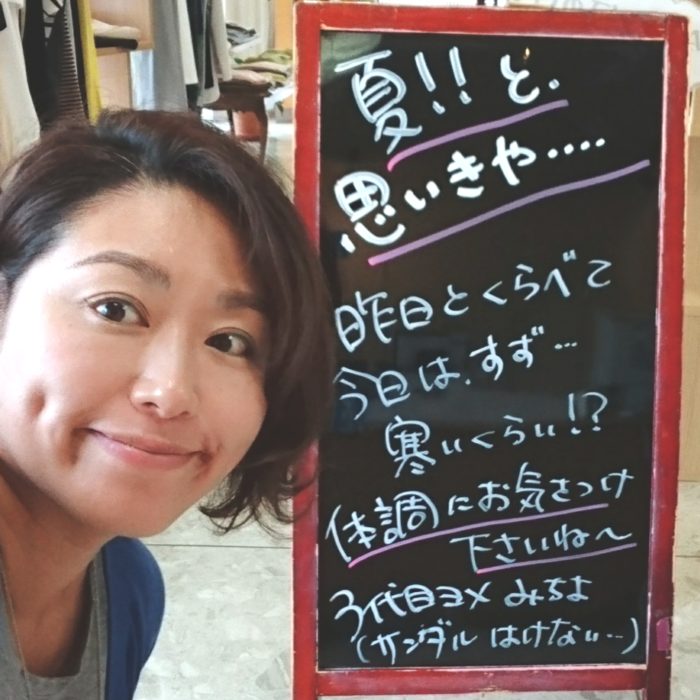 夏!!と、
思いきや‥‥
昨日とくらべて
今日は、すず…
寒いくらい!?
体調にお気をつけ
下さいね〜
3代目ヨメ みちよ
(サンダル はけない…)